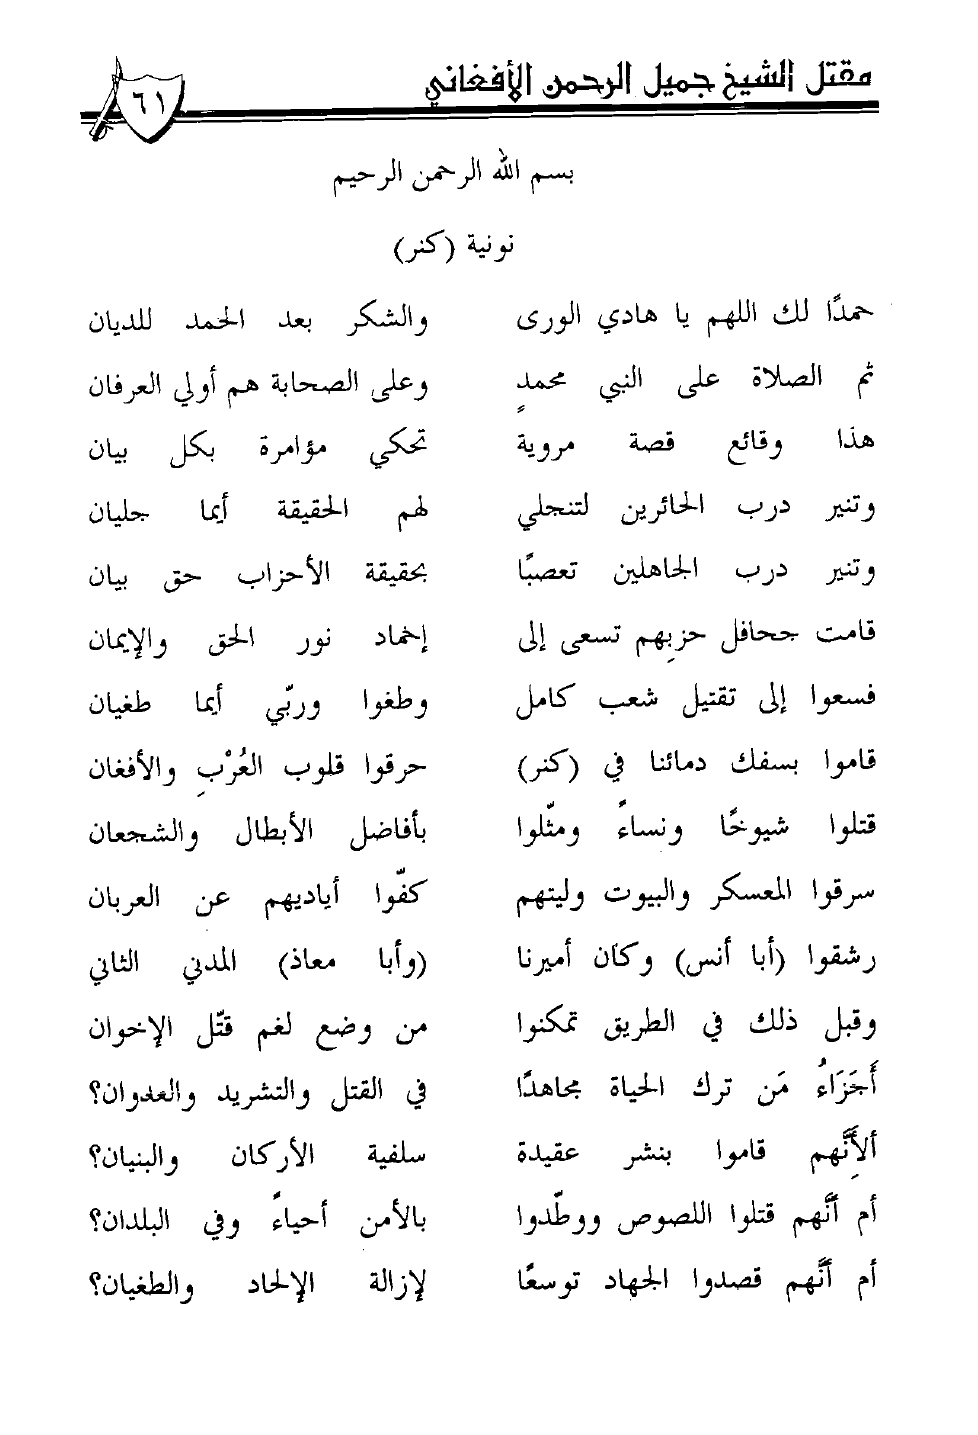 مقتل الشيخ جميل الرحمن الأفغاني
٦١
بسم الله الرحمن الرحيم
نونية (كنر)
حمدًا لك اللهم يا هادي الورى والشكر بعد الحمد للديان
ثم الصلاة على النبي محمدٍ وعلى الصحابة هم أولي العرفان
هذا وقائع قصة مروية تحكي مؤامرة بكل بيان
وتنير درب الحائرين لتنجلي لهم الحقيقة أيما جليان
وتنير درب الجاهلين تعصبًا بحقيقة الأحزاب حق بيان
قامت جحافل حزبِهم تسعى إلى إخماد نور الحق والإيمان
فسعوا إلى تقتيل شعب كامل وطغوا وربّي أيما طغيان
قاموا بسفك دمائنا في (كنر) حرقوا قلوب العُرْبِ والأفغان
قتلوا شيوخًا ونساءً ومثّلوا بأفاضل الأبطال والشجعان
سرقوا المعسكر والبيوت وليتهم كفّوا أياديهم عن العربان
رشقوا (أبا أنس) وكان أميرنا (وأبا معاذ) المدني الثاني
وقبل ذلك في الطريق تمكنوا من وضع لغم قتّل الإخوان
أَجَزَاءُ مَن ترك الحياة مجاهدًا في القتل والتشريد والعدوان؟
ألأَنَّهِم قاموا بنشر عقيدة سلفية الأركان والبنيان؟
أم أنَّهم قتلوا اللصوص ووطّدوا بالأمن أحياءً وفي البلدان؟
أم أنَّهم قصدوا الجهاد توسعًا لإزالة الإلحاد والطغيان؟